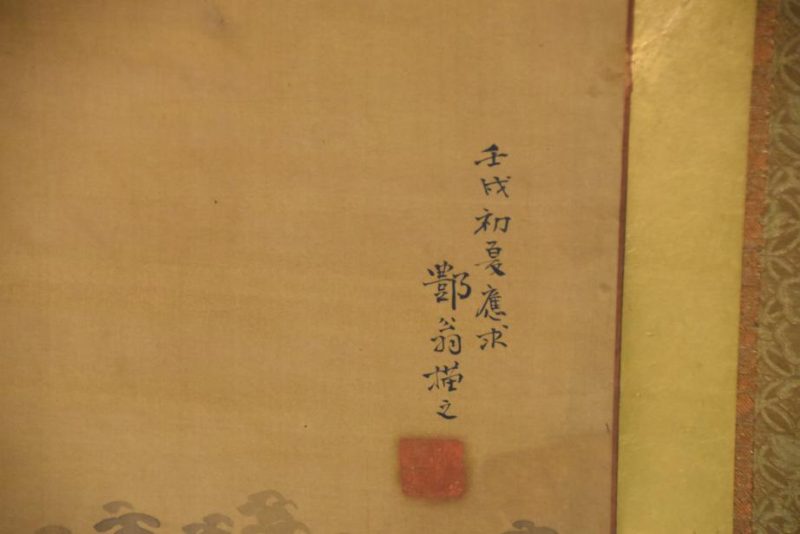 壬戌初夏應求
酆翁描之